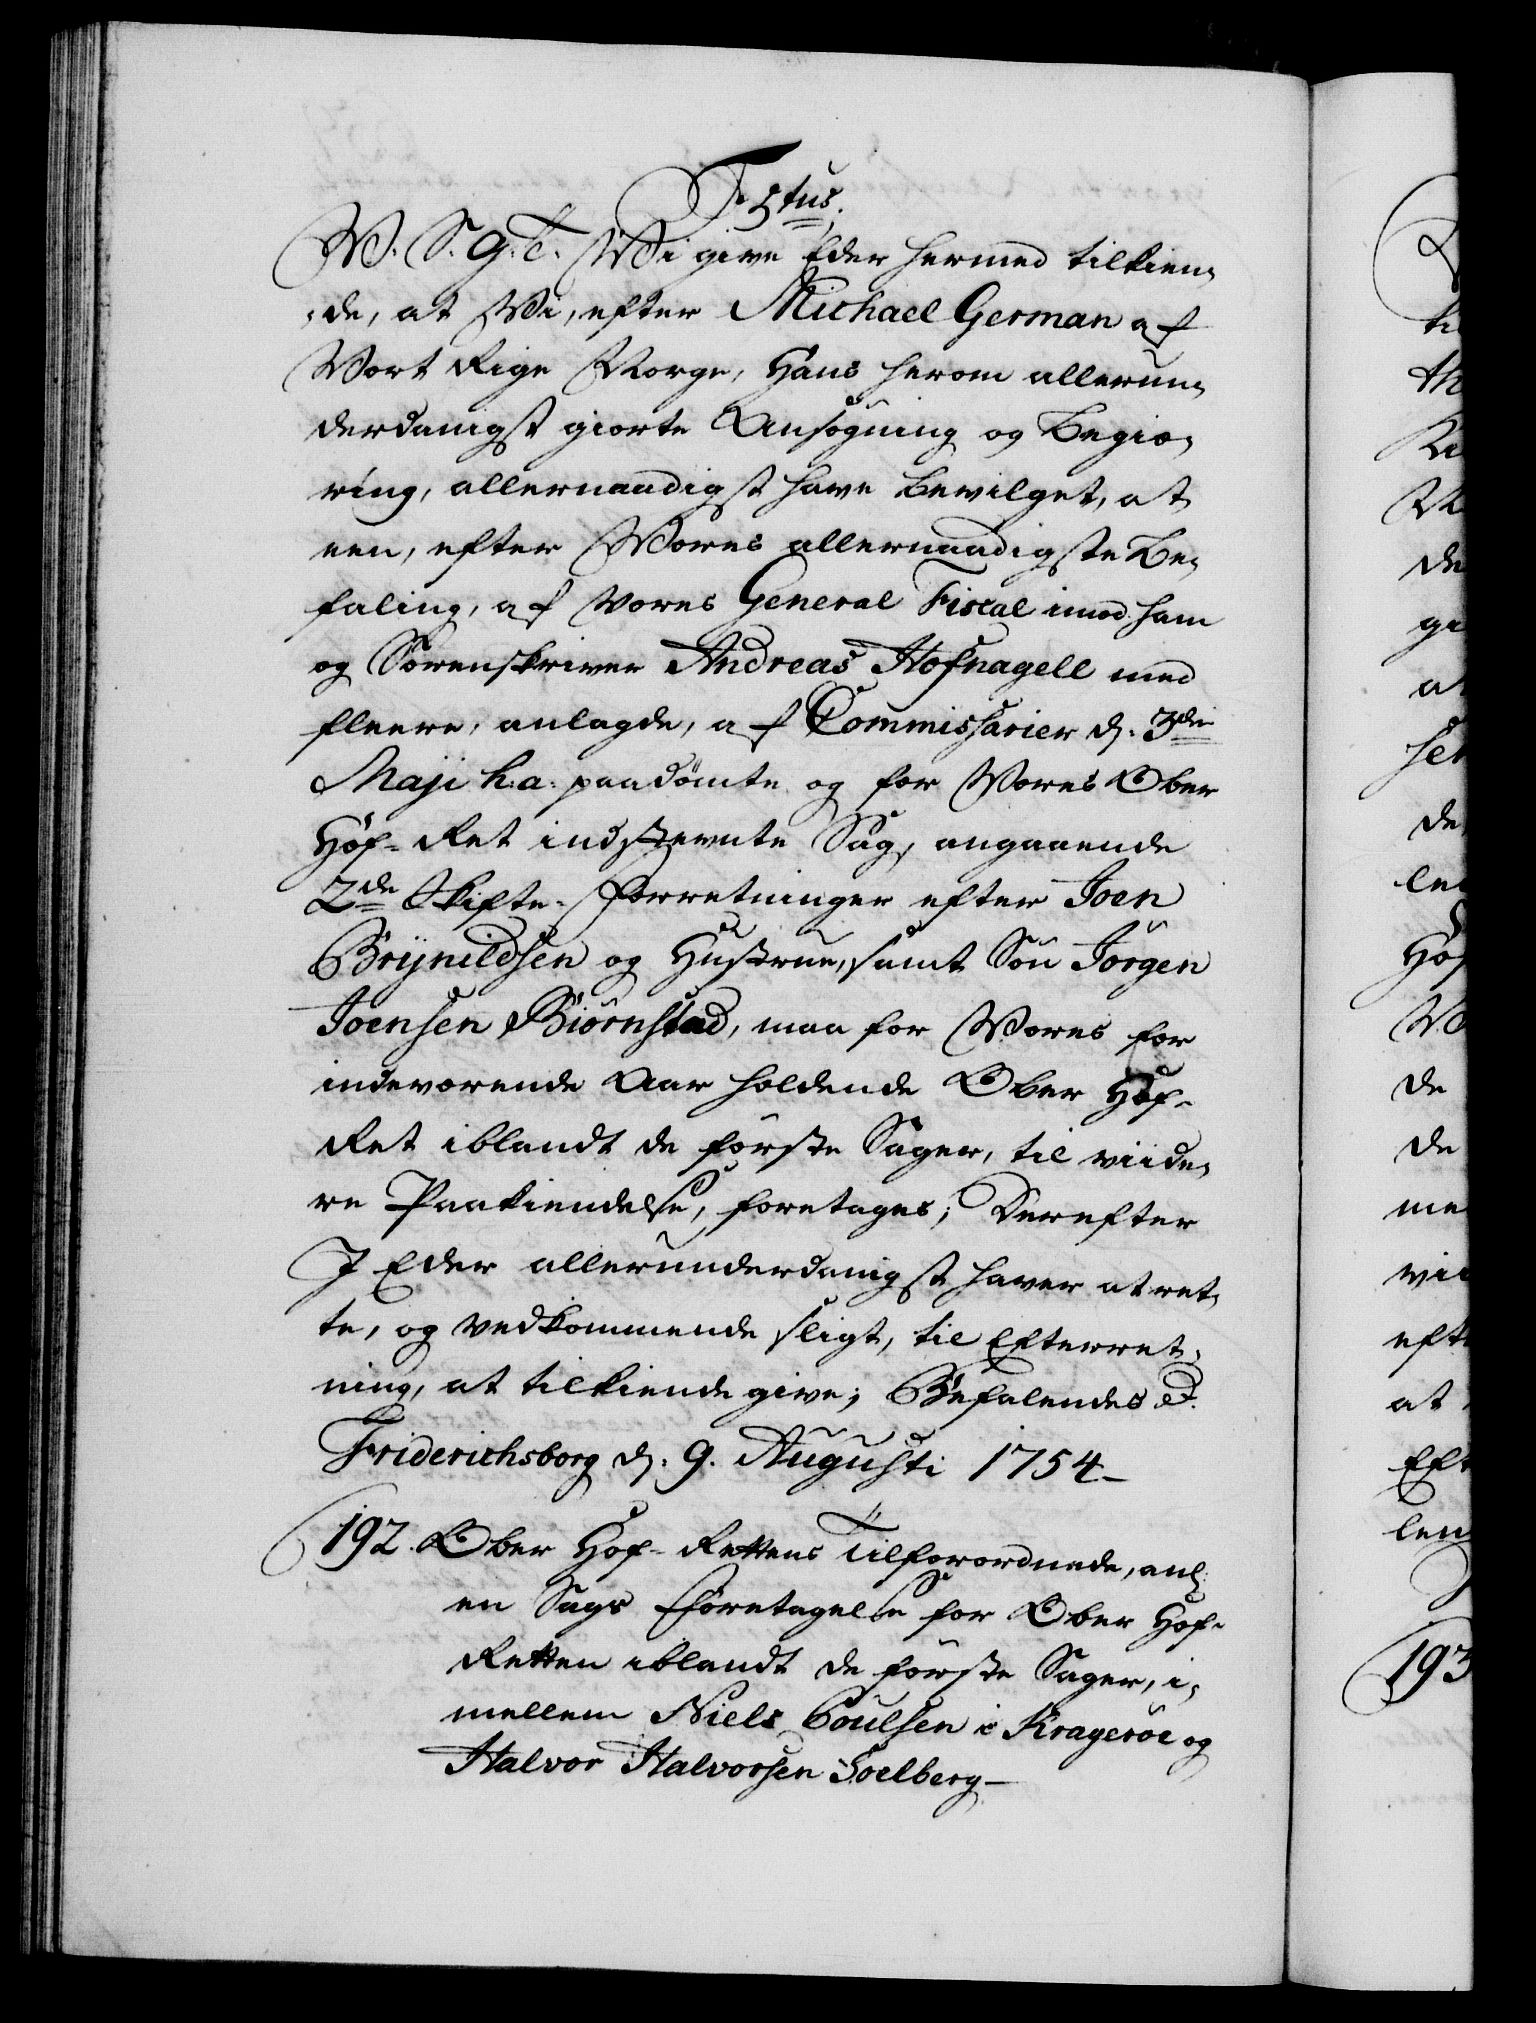 F. 5tus.
W. S. G. T. Wi give Eder hermed tilkien¬
de, at Wi, efter Michael German af
Vort Rige Norge, Hans herom allerun¬
derdanigst giorte Ansøgning og Begiæ¬
ring, allernaadigst have bevilget, at
een, efter Vores allernaadigste Be¬
faling, af Vores General Fiscal imod ham
og Sorenskriver Andreas Hofnagell med
fleere, anlagde, af Commissarier d. 3die
Maji h. a. paadömte og for Vores Ober
Hof-Ret indstevnte Sag, angaaende
2de Skifte-Forretninger efter Joen
Brynildsen og Hustrue, samt Søn Jörgen
Joensen Biörnstad, maa for Vores for
indeværende Aar holdende Ober Hof-
Ret iblandt de förste Sager, til viide¬
re Paakiendelse, foretages; Derefter
I Eder allerunderdanigst haver at ret¬
te, og vedkommende sligt, til Efterret¬
ning, at tilkiende give; Befalendes p.
Friderichsborg d. 9. Augusti 1754-
192. Ober Hof-Rettens Tilforordnede, anl.
en Sags Foretagelse for Ober Hof-
Retten iblandt de förste Sager, i¬
mellem Niels Poulsen i Krageröe og
Halvor Halvorsen Soelberg-
193